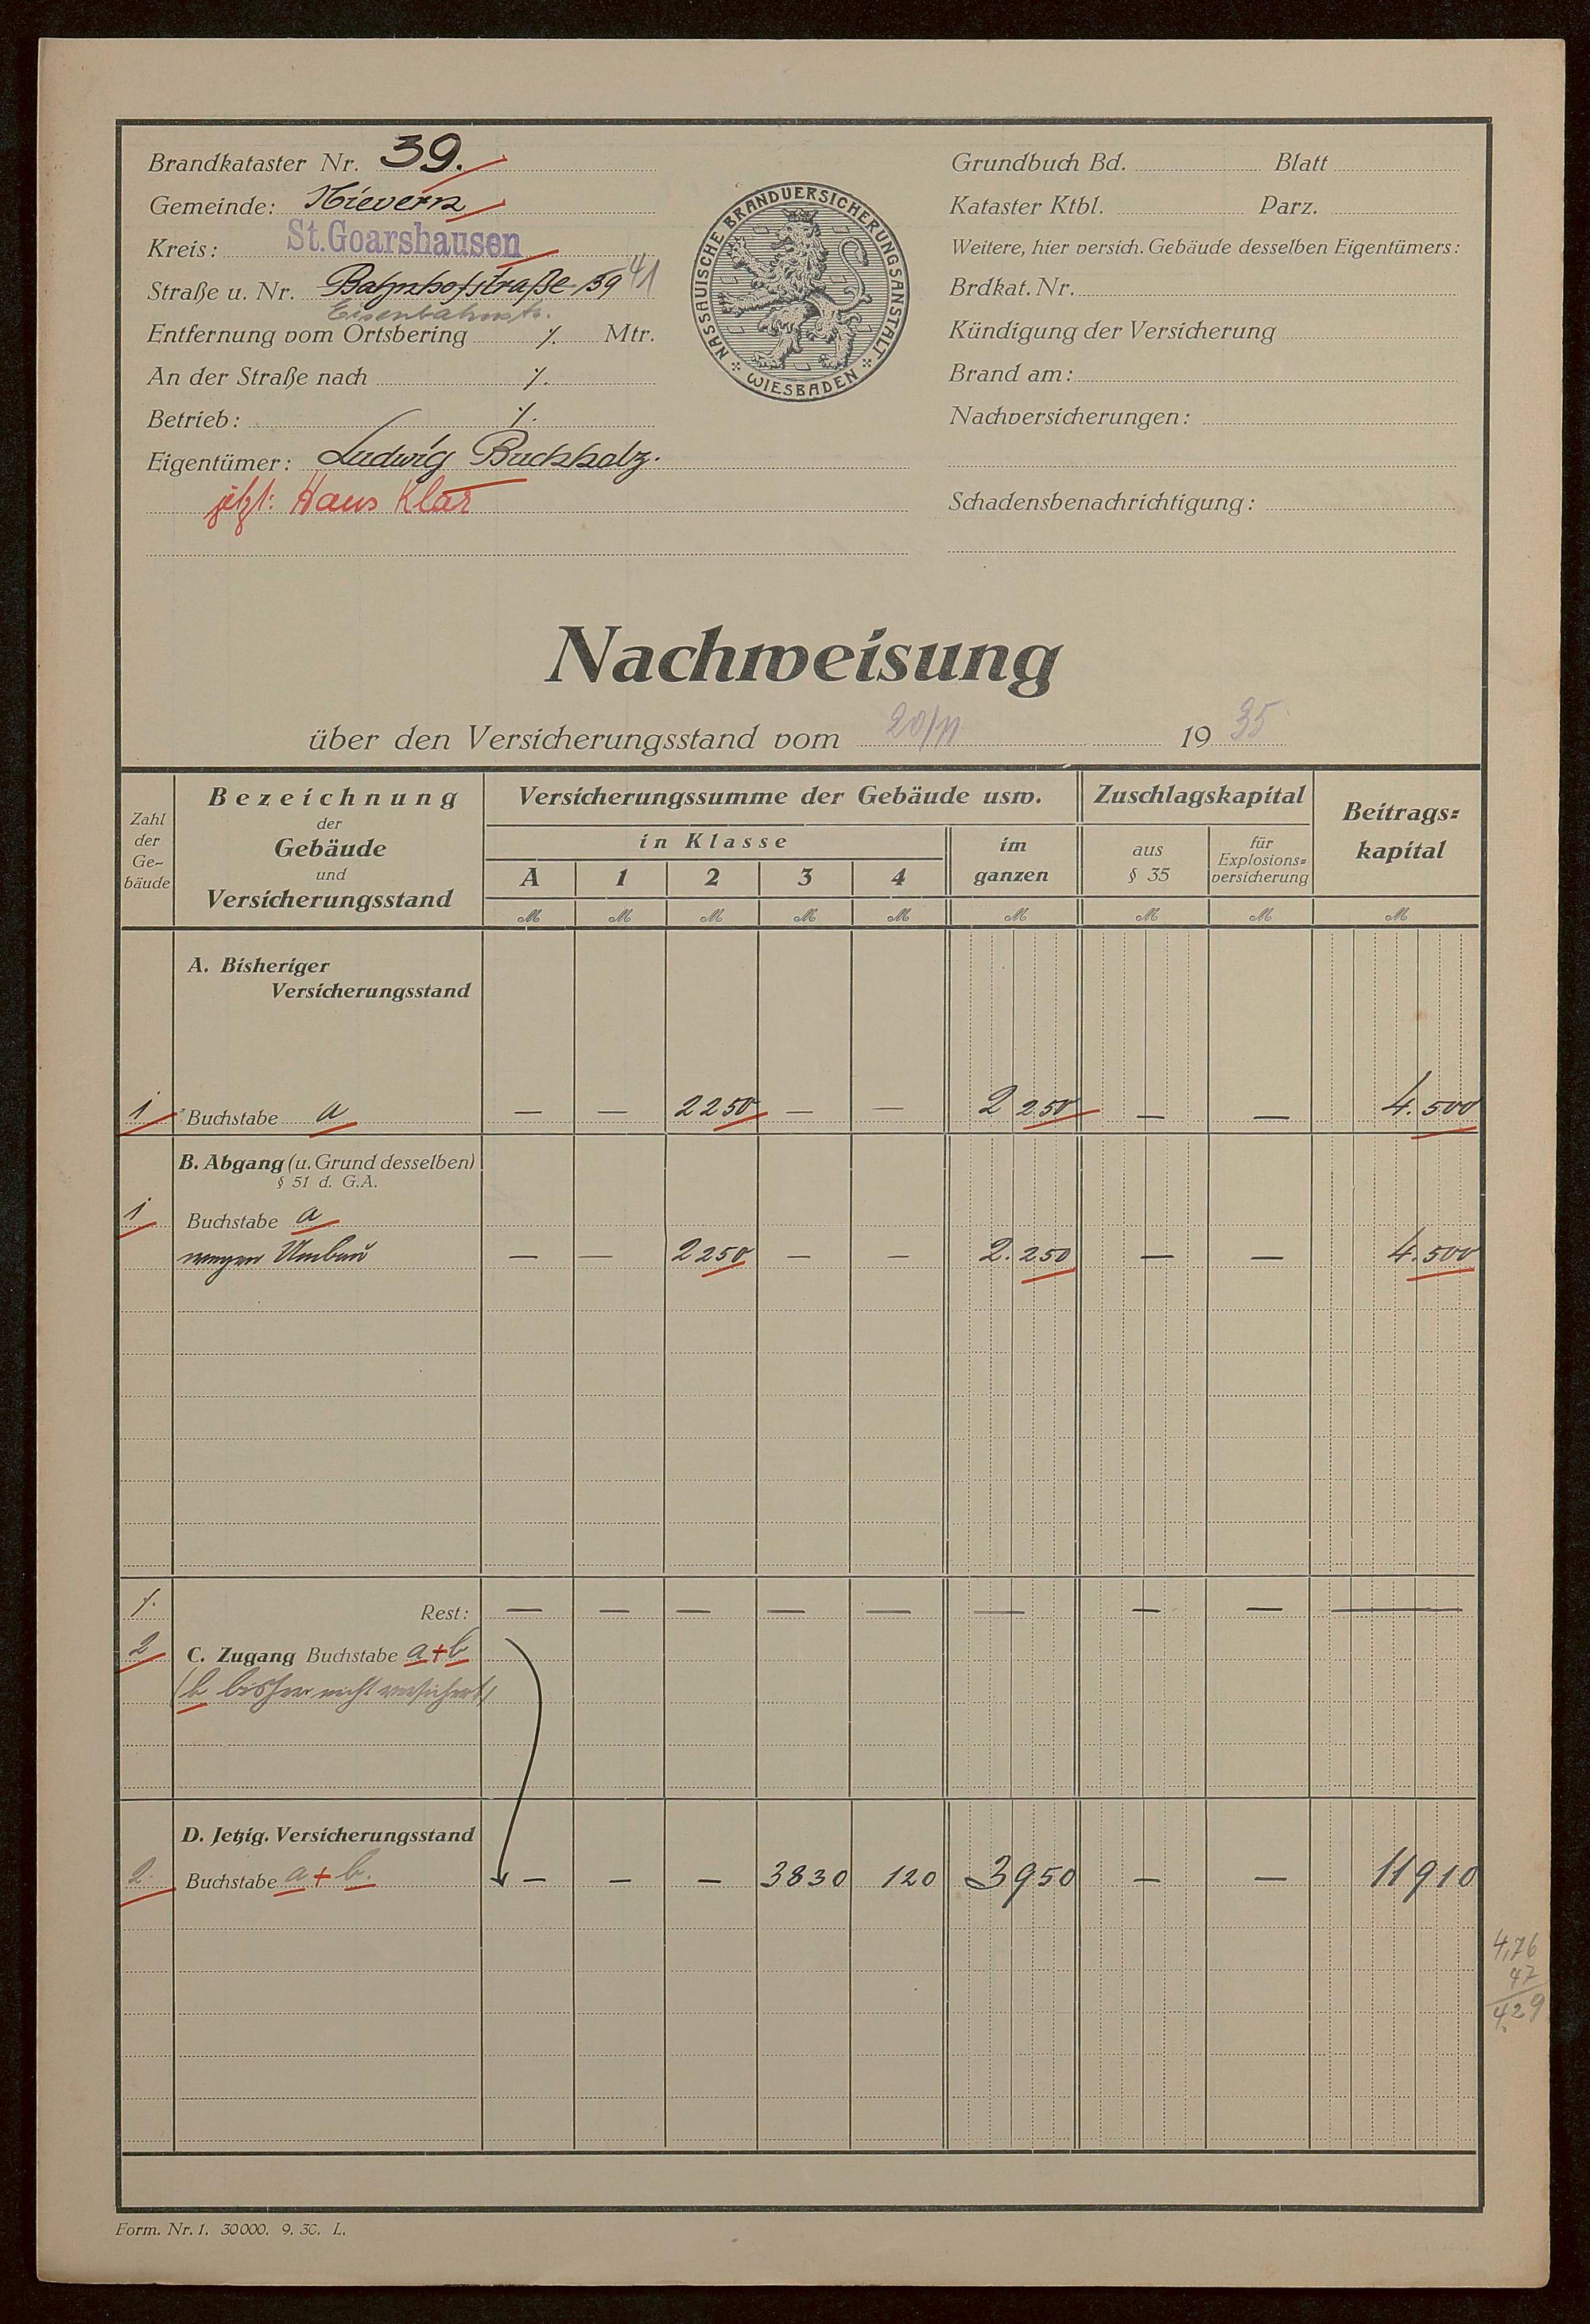 Brandkataster Nr. 39.
Gemeinde: Nievern
Kreis: St. Goarshausen
Straße u. Nr. Bahnhofstraße 59 41
Eisenbahnstr.
Entfernung vom Ortsbering ⁒ Mtr.
An der Straße nach ⁒
Betrieb: ⁒
Eigentümer: Ludwig Buchholz.
jetzt: Hans Klar
NASSAUISCHE BRANDVERSICHERUNGSANSTALT
WIESBADEN
Grundbuch Bd. Blatt
Kataster Ktbl. Parz.
Weitere, hier versich. Gebäude desselben Eigentümers:
Brdkat. Nr.
Kündigung der Versicherung
Brand am:
Nachversicherungen:
Schadensbenachrichtigung:
Nachweisung
über den Versicherungsstand vom 20/11 1935
Zahl der Ge-bäude
Bezeichnung der Gebäude und Versicherungsstand
Versicherungssumme der Gebäude usw.
in Klasse
A 1 2 3 4
im ganzen
Zuschlagskapital
aus § 35
für Explosions-versicherung
Beitrags-kapital
M M M M M M M M M
A. Bisheriger
Versicherungsstand
1 Buchstabe a — — 2250 — — 2250 — — 4.500
B. Abgang (u. Grund desselben)
§ 51 d. G.A.
1 Buchstabe a
wegen Umbau — — 2250 — — 2.250 — — 4.500
⁒ Rest: — — — — — — — — —
2 C. Zugang Buchstabe a+b
(b bisher nicht versichert)
D. Jetzig. Versicherungsstand
2. Buchstabe a+b. — — — 3830 120 3950 — — 11910
4,76
47
4,29
Form. Nr. 1. 30000. 9. 30. L.